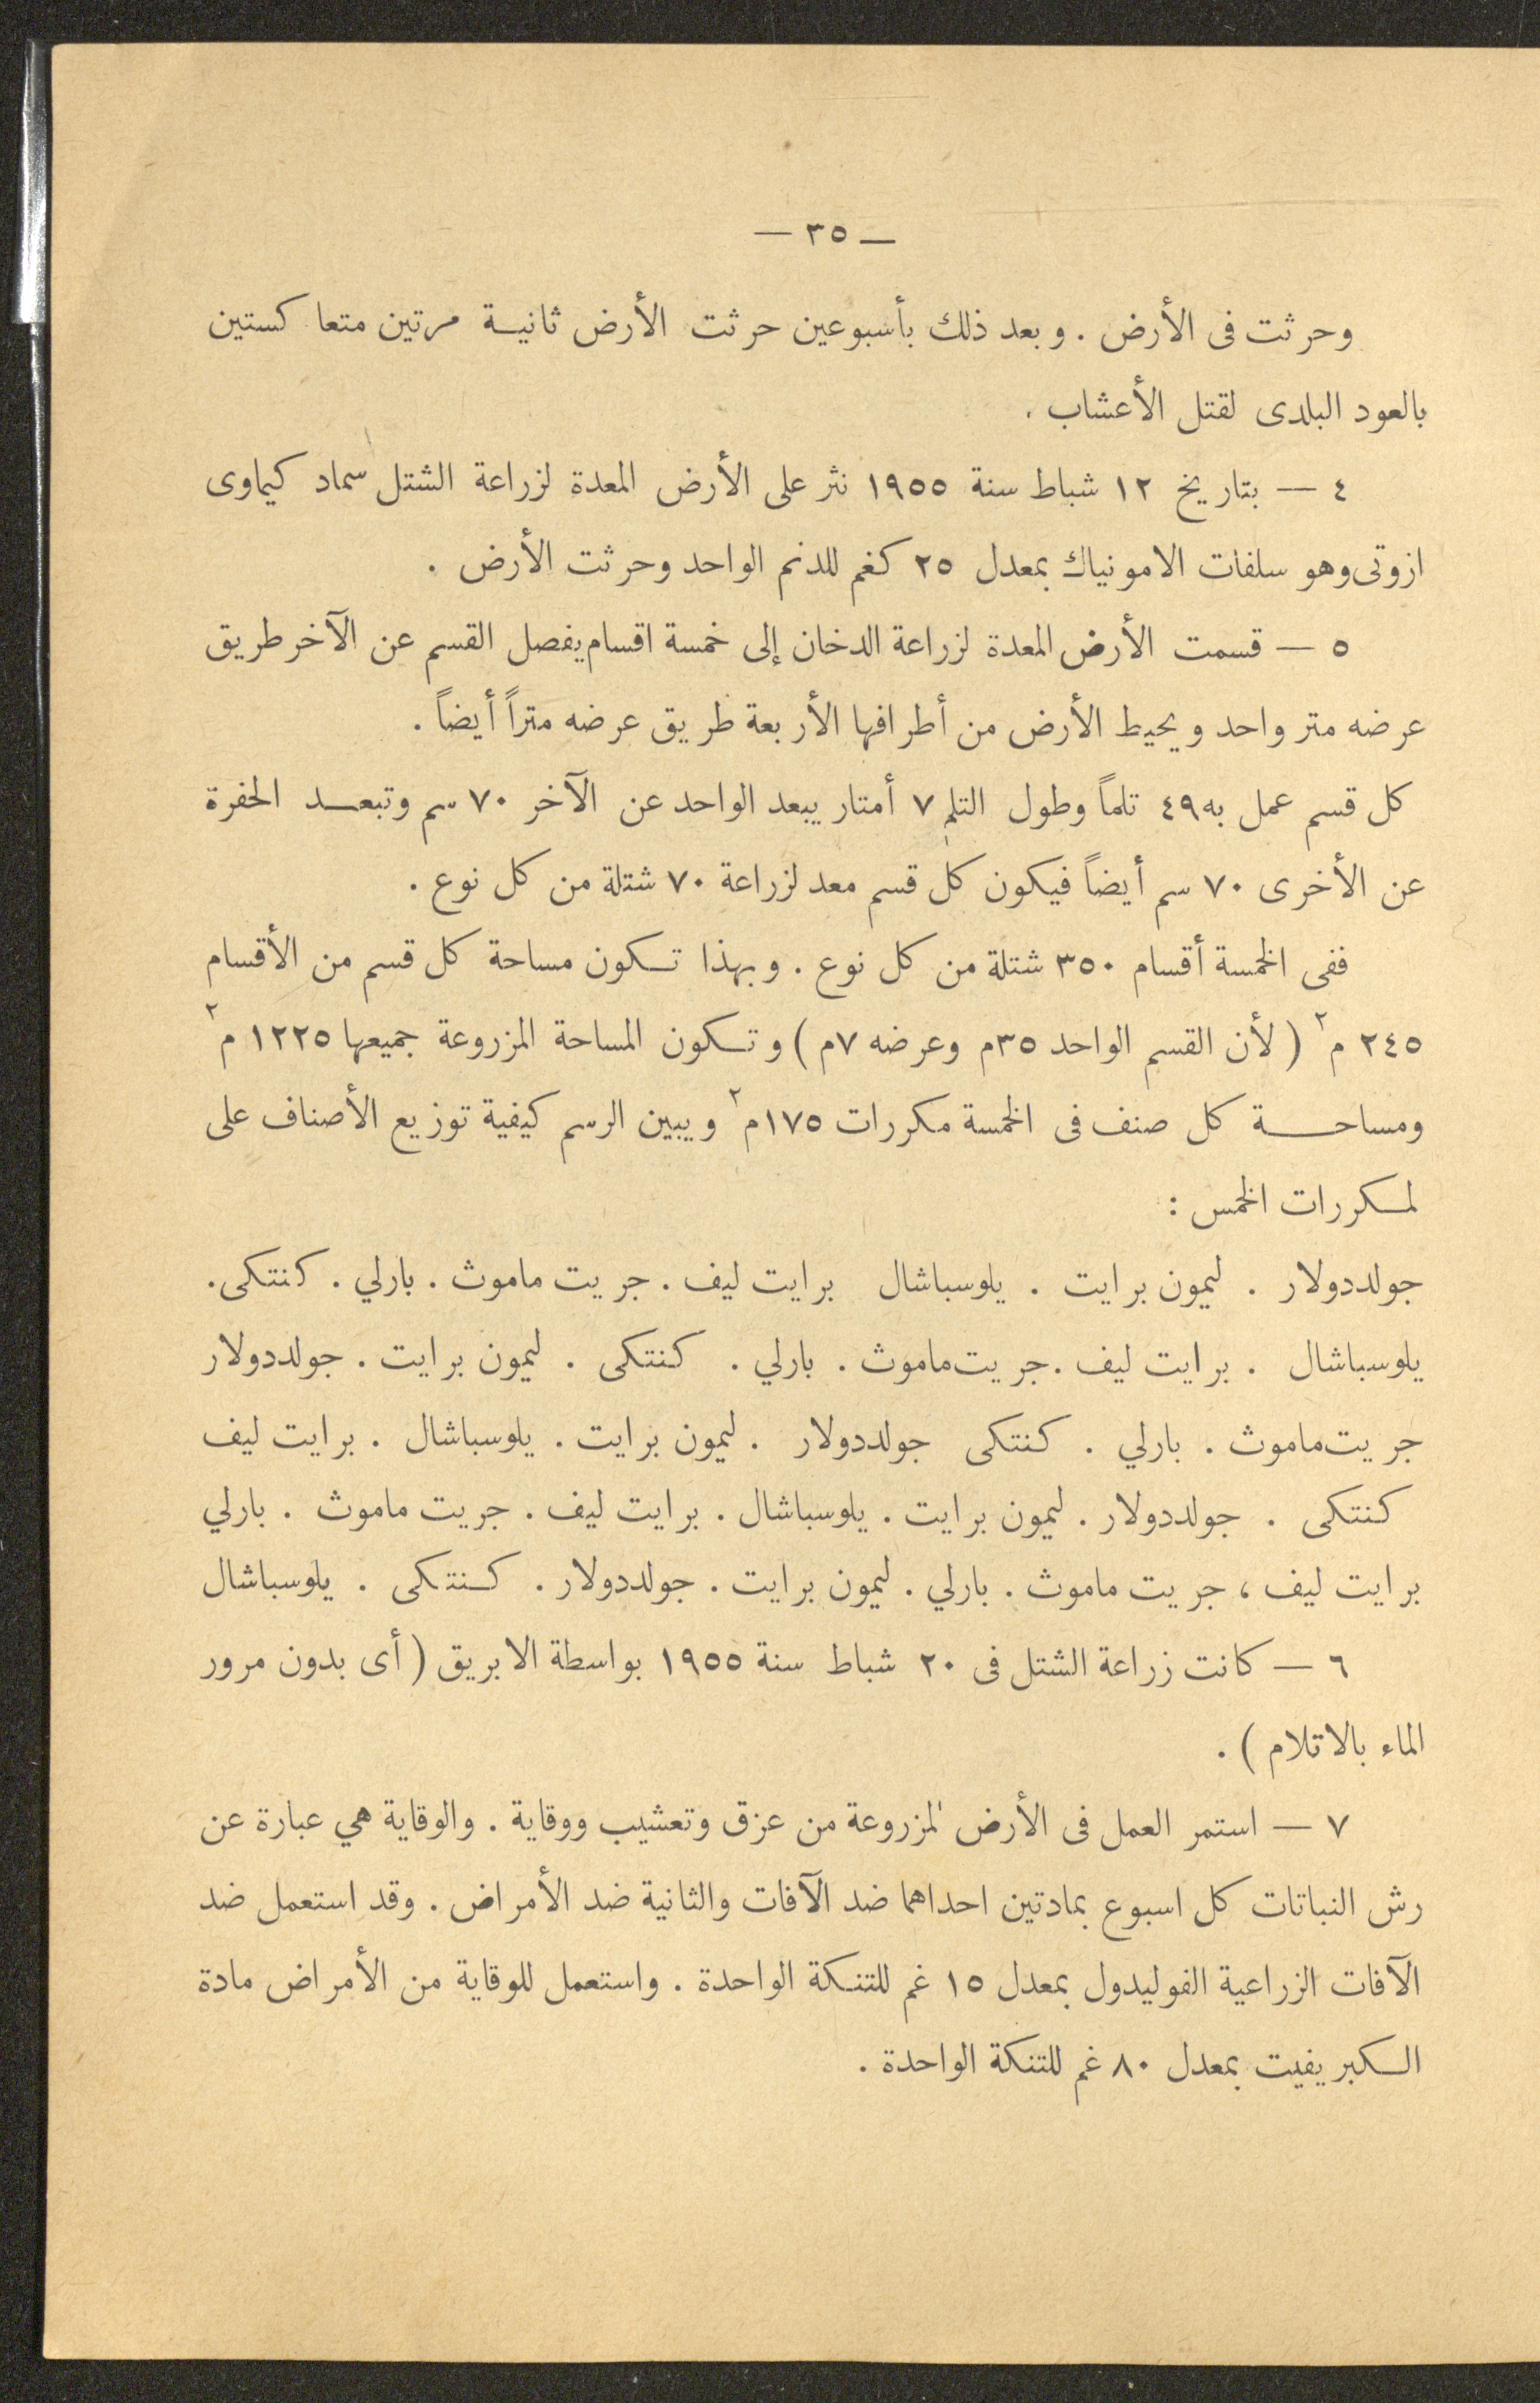 — ٣٥ —
وحرثت فى الأرض . وبعد ذلك بأسبوعين حرثت الأرض ثانية مرتين متعا كستين
بالعود البلدى لقتل الأعشاب .
٤ — بتاريخ ١٢ شباط سنة ١٩٥٥ نثر على الأرض المعدة لزراعة الشتل سماد كيماوى
ازوتى وهو سلفات الامونياك بمعدل ٢٥ كغم للدنم الواحد وحرثت الأرض .
٥ — قسمت الأرض المعدة لزراعة الدخان إلى خمسة اقسام يفصل القسم عن الآخر طريق
عرضه متر واحد ويحيط الأرض من أطرافها الأربعة طريق عرضه متراً أيضاً .
كل قسم عمل به ٤٩ تلماً وطول التلم ٧ أمتار يبعد الواحد عن الآخر ٧٠ سم وتبعد الحفرة
عن الأخرى ٧٠ سم أيضاً فيكون كل قسم معد لزراعة ٧٠ شتلة من كل نوع .
ففى الخمسة أقسام ٣٥٠ شتلة من كل نوع . وبهذا تكون مساحة كل قسم من الأقسام
٢٤٥ م٢ ( لأن القسم الواحد ٣٥م وعرضه ٧م ) وتكون المساحة المزروعة جميعها ١٢٢٥ م٢
ومساحة كل صنف فى الخمسة مكررات ١٧٥م٢ ويبين الرسم كيفية توزيع الأصناف على
لمكررات الخمس :
جولددولار . ليمون برايت . يلوسباشال برايت ليف . جريت ماموث . بارلي . كنتكى .
يلوسباشال . برايت ليف . جريت ماموث . بارلي . كنتكى . ليمون برايت . جولددولار
جريت ماموث . بارلي . كنتكى جولددولار . ليمون برايت . يلوسباشال . برايت ليف
كنتكى . جولددولار . ليمون برايت . يلوسباشال . برايت ليف . جريت ماموث . بارلي
برايت ليف ، جريت ماموث . بارلي . ليمون برايت . جولددولار . كنتكى . يلوسباشال
٦ — كانت زراعة الشتل فى ٢٠ شباط سنة ١٩٥٥ بواسطة الابريق ( أى بدون مرور
الماء بالاتلام ) .
٧ — استمر العمل فى الأرض لمزروعة من عزق وتعشيب ووقاية . والوقاية هي عبارة عن
رش النباتات كل اسبوع بمادتين احداهما ضد الآفات والثانية ضد الأمراض . وقد استعمل ضد
الآفات الزراعية الفوليدول بمعدل ١٥ غم للتنكة الواحدة . واستعمل للوقاية من الأمراض مادة
الكبريفيت بمعدل ٨٠ غم للتنكة الواحدة .